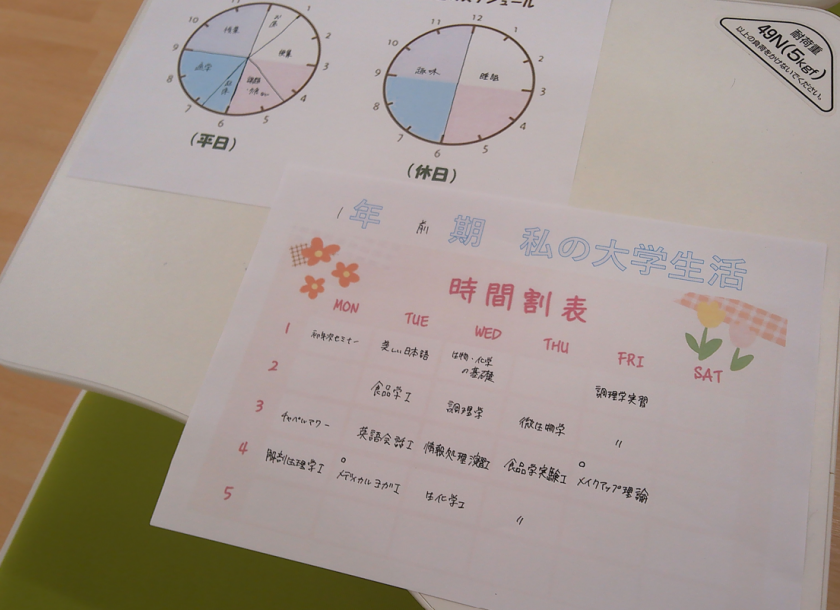 11
1
10
2
9
3
8
4
7
5
6
授業
昼食
通学
(平日)
ュール
12
11
1
10
2
9
3
8
4
7
5
6
趣味
睡眠
(休日)
耐荷重
49N(5kgf)
以上の負荷をかけないでください。
1年 前期 私の大学生活
時間割表
MON TUE WED THU FRI SAT
1 初年次セミナー 美しい日本語 生物・化学の基礎 調理学実習
2 食品学I 調理学 微生物学 〃
3 チャペルアワー 英語会話I 情報処理演習I 食品学実験I 。メイクアップ理論
4 解剖生理学I 。メディカルヨガI 生化学I 〃
5